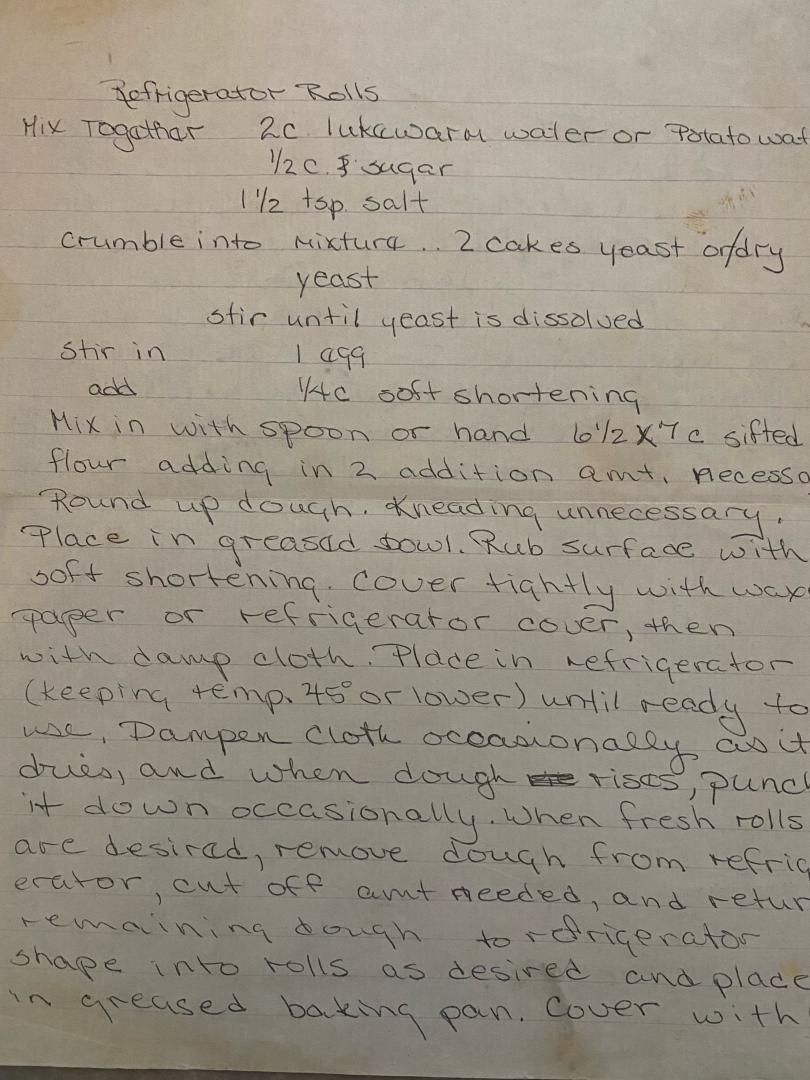 Refrigerator Rolls
Mix Together 2c lukewarm water or Potato wat
1/2 c. sugar
1 1/2 tsp. salt
crumble into mixture .. 2 cakes yeast or/dry
yeast
stir until yeast is dissolved
stir in 1 egg
add 1/4c soft shortening
Mix in with spoon or hand 6 1/2 X 7 c sifted
flour adding in 2 addition amt. necessa
Round up dough. Kneading unnecessary.
Place in greased bowl. Rub surface with
soft shortening. Cover tightly with wax
paper or refrigerator cover, then
with damp cloth. Place in refrigerator
(keeping temp. 45° or lower) until ready to
use. Dampen cloth occasionally as it
dries, and when dough rises, punch
it down occasionally. When fresh rolls
are desired, remove dough from refrig
erator, cut off amt needed, and retur
remaining dough to refrigerator
shape into rolls as desired and place
in greased baking pan. Cover with